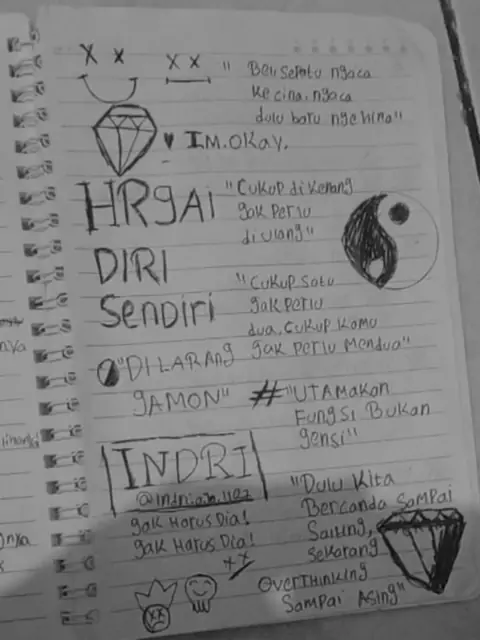 X X X X
"Beli Sepatu ngaca
ke cina, ngaca
dulu baru ngehina"
I'M.OKAY.
HRGAI
DIRI
SENDIRI
"Cukup di kenang
gak Perlu
di ulang"
"Cukup Satu
gak Perlu
dua, Cukup Kamu
gak Perlu Mendua"
"DILARANG
GAMON"
# "UTAMAKAN
FUNGSI BUKAN
gensi"
INDRI
gak Harus Dia!
gak Harus Dia!
"Dulu Kita
Bercanda Sampai
Saling,
Sekarang
OverThinking
Sampai Asing"
X X